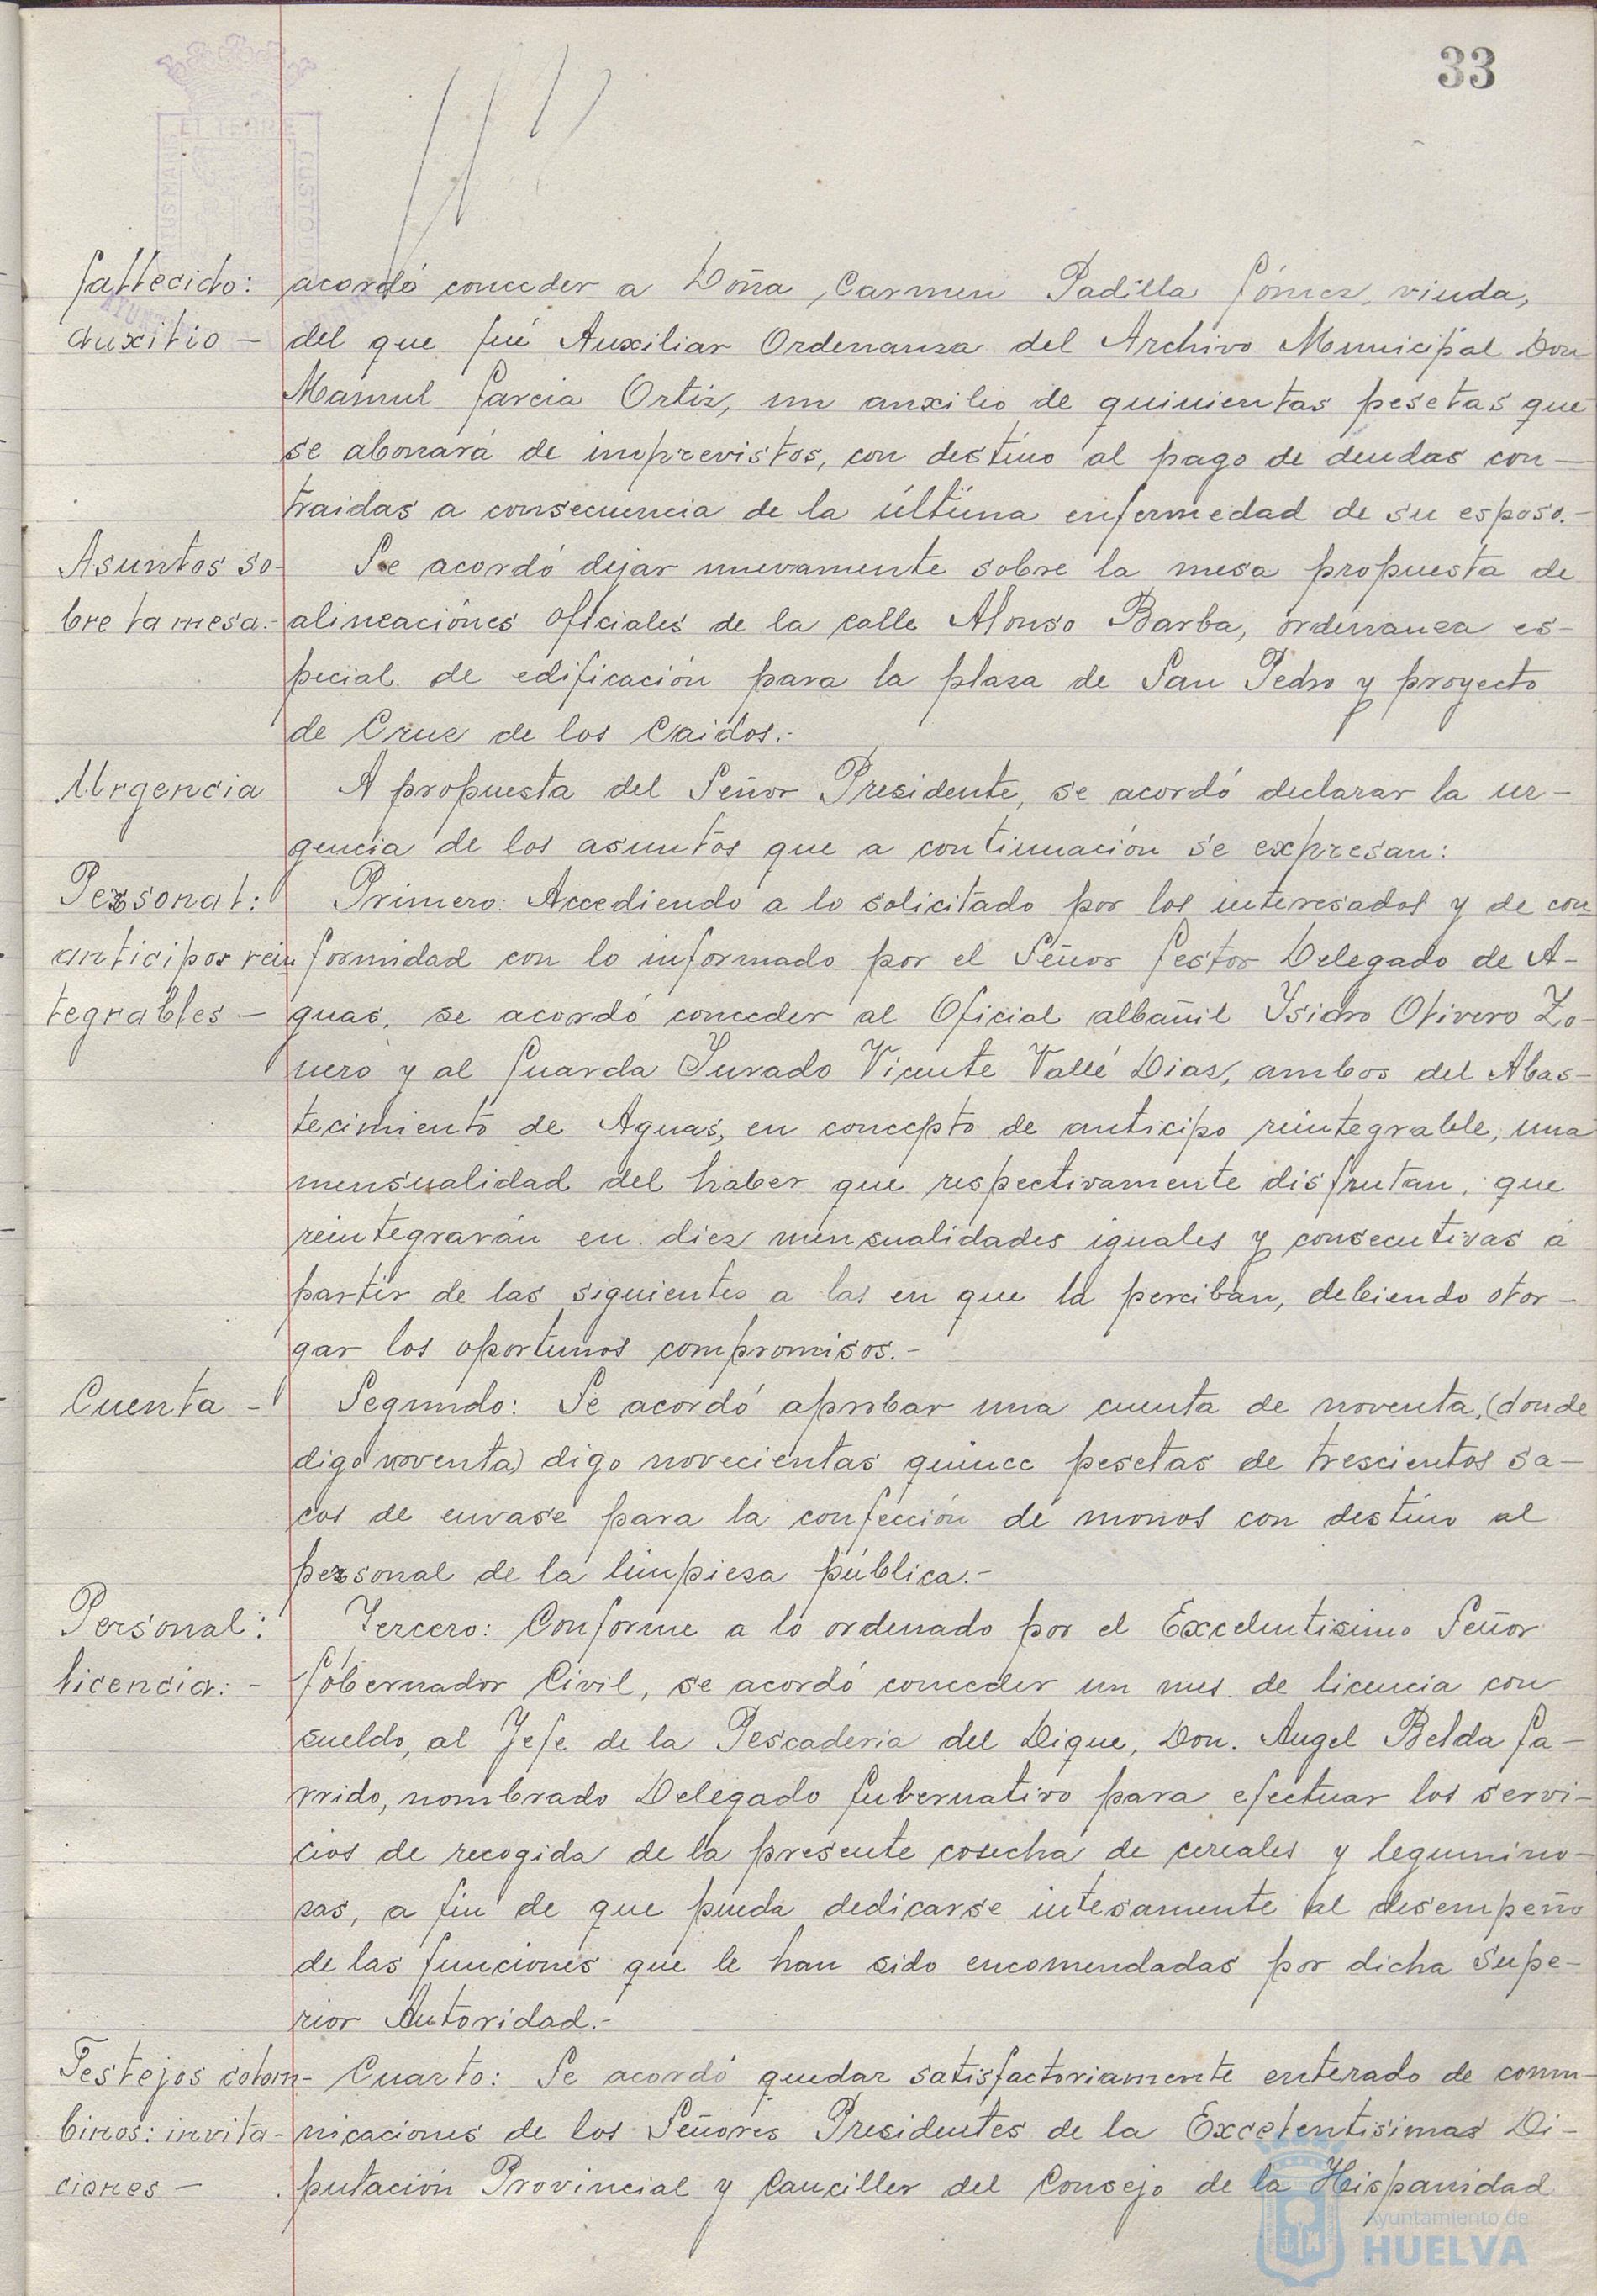 33
fallecido: acordó conceder a Doña Carmen Padilla Gómez, viuda,
auxilio - del que fué Auxiliar Ordenanza del Archivo Municipal Don
Manuel Garcia Ortiz, un auxilio de quinientas pesetas que
se abonará de imprevistos, con destino al pago de deudas con-
traidas a consecuencia de la última enfermedad de su esposo.-
Asuntos so- Se acordó dejar nuevamente sobre la mesa propuesta de
bre la mesa.- alineaciónes oficiales de la calle Alonso Barba, ordenanza es-
pecial de edificación para la plaza de San Pedro y proyecto
de Cruz de los Caidos.-
Urgencia A propuesta del Señor Presidente, se acordó declarar la ur-
gencia de los asuntos que a continuación se expresan:
Personal: Primero: Accediendo a lo solicitado por los interesados y de con
anticipos rein formidad con lo informado por el Señor Gestor Delegado de A-
tegrables - guas, se acordó conceder al Oficial albañil Ysidro Olivero Zo-
nero y al Guarda Jurado Vicente Vallé Dias, ambos del Abas-
tecimiento de Aguas, en concepto de anticipo reintegrable, una
mensualidad del haber que respectivamente disfrutan, que
reintegrarán en diez mensualidades iguales y consecutivas á
partir de las siguientes a las en que la perciban, debiendo otor-
gar los oportunos compromisos.-
Cuenta - Segundo: Se acordó aprobar una cuenta de noventa, (donde
digo noventa) digo novecientas quince pesetas de trescientos sa-
cos de envase para la confección de monos con destino al
personal de la limpieza pública.-
Personal: Tercero: Conforme a lo ordenado por el Excelentisimo Señor
licencia:- Góbernador Civil, se acordó conceder un mes de licencia con
sueldo, al Jefe de la Pescaderia del Dique, Don. Angel Belda Ga-
rrido, nombrado Delegado Gubernativo para efectuar los servi-
cios de recogida de la presente cosecha de cereales y legumino-
sas, a fin de que pueda dedicarse intesamente al desempeño
de las funciones que le han sido encomendadas por dicha Supe-
rior Autoridad.-
Festejos colom- Cuarto: Se acordó quedar satisfactoriamente enterado de comu-
binos: invita- nicaciones de los Señores Presidentes de la Excelentisimas Di-
ciones - putación Provincial y Canciller del Consejo de la Hispanidad
Ayuntamiento de
HUELVA